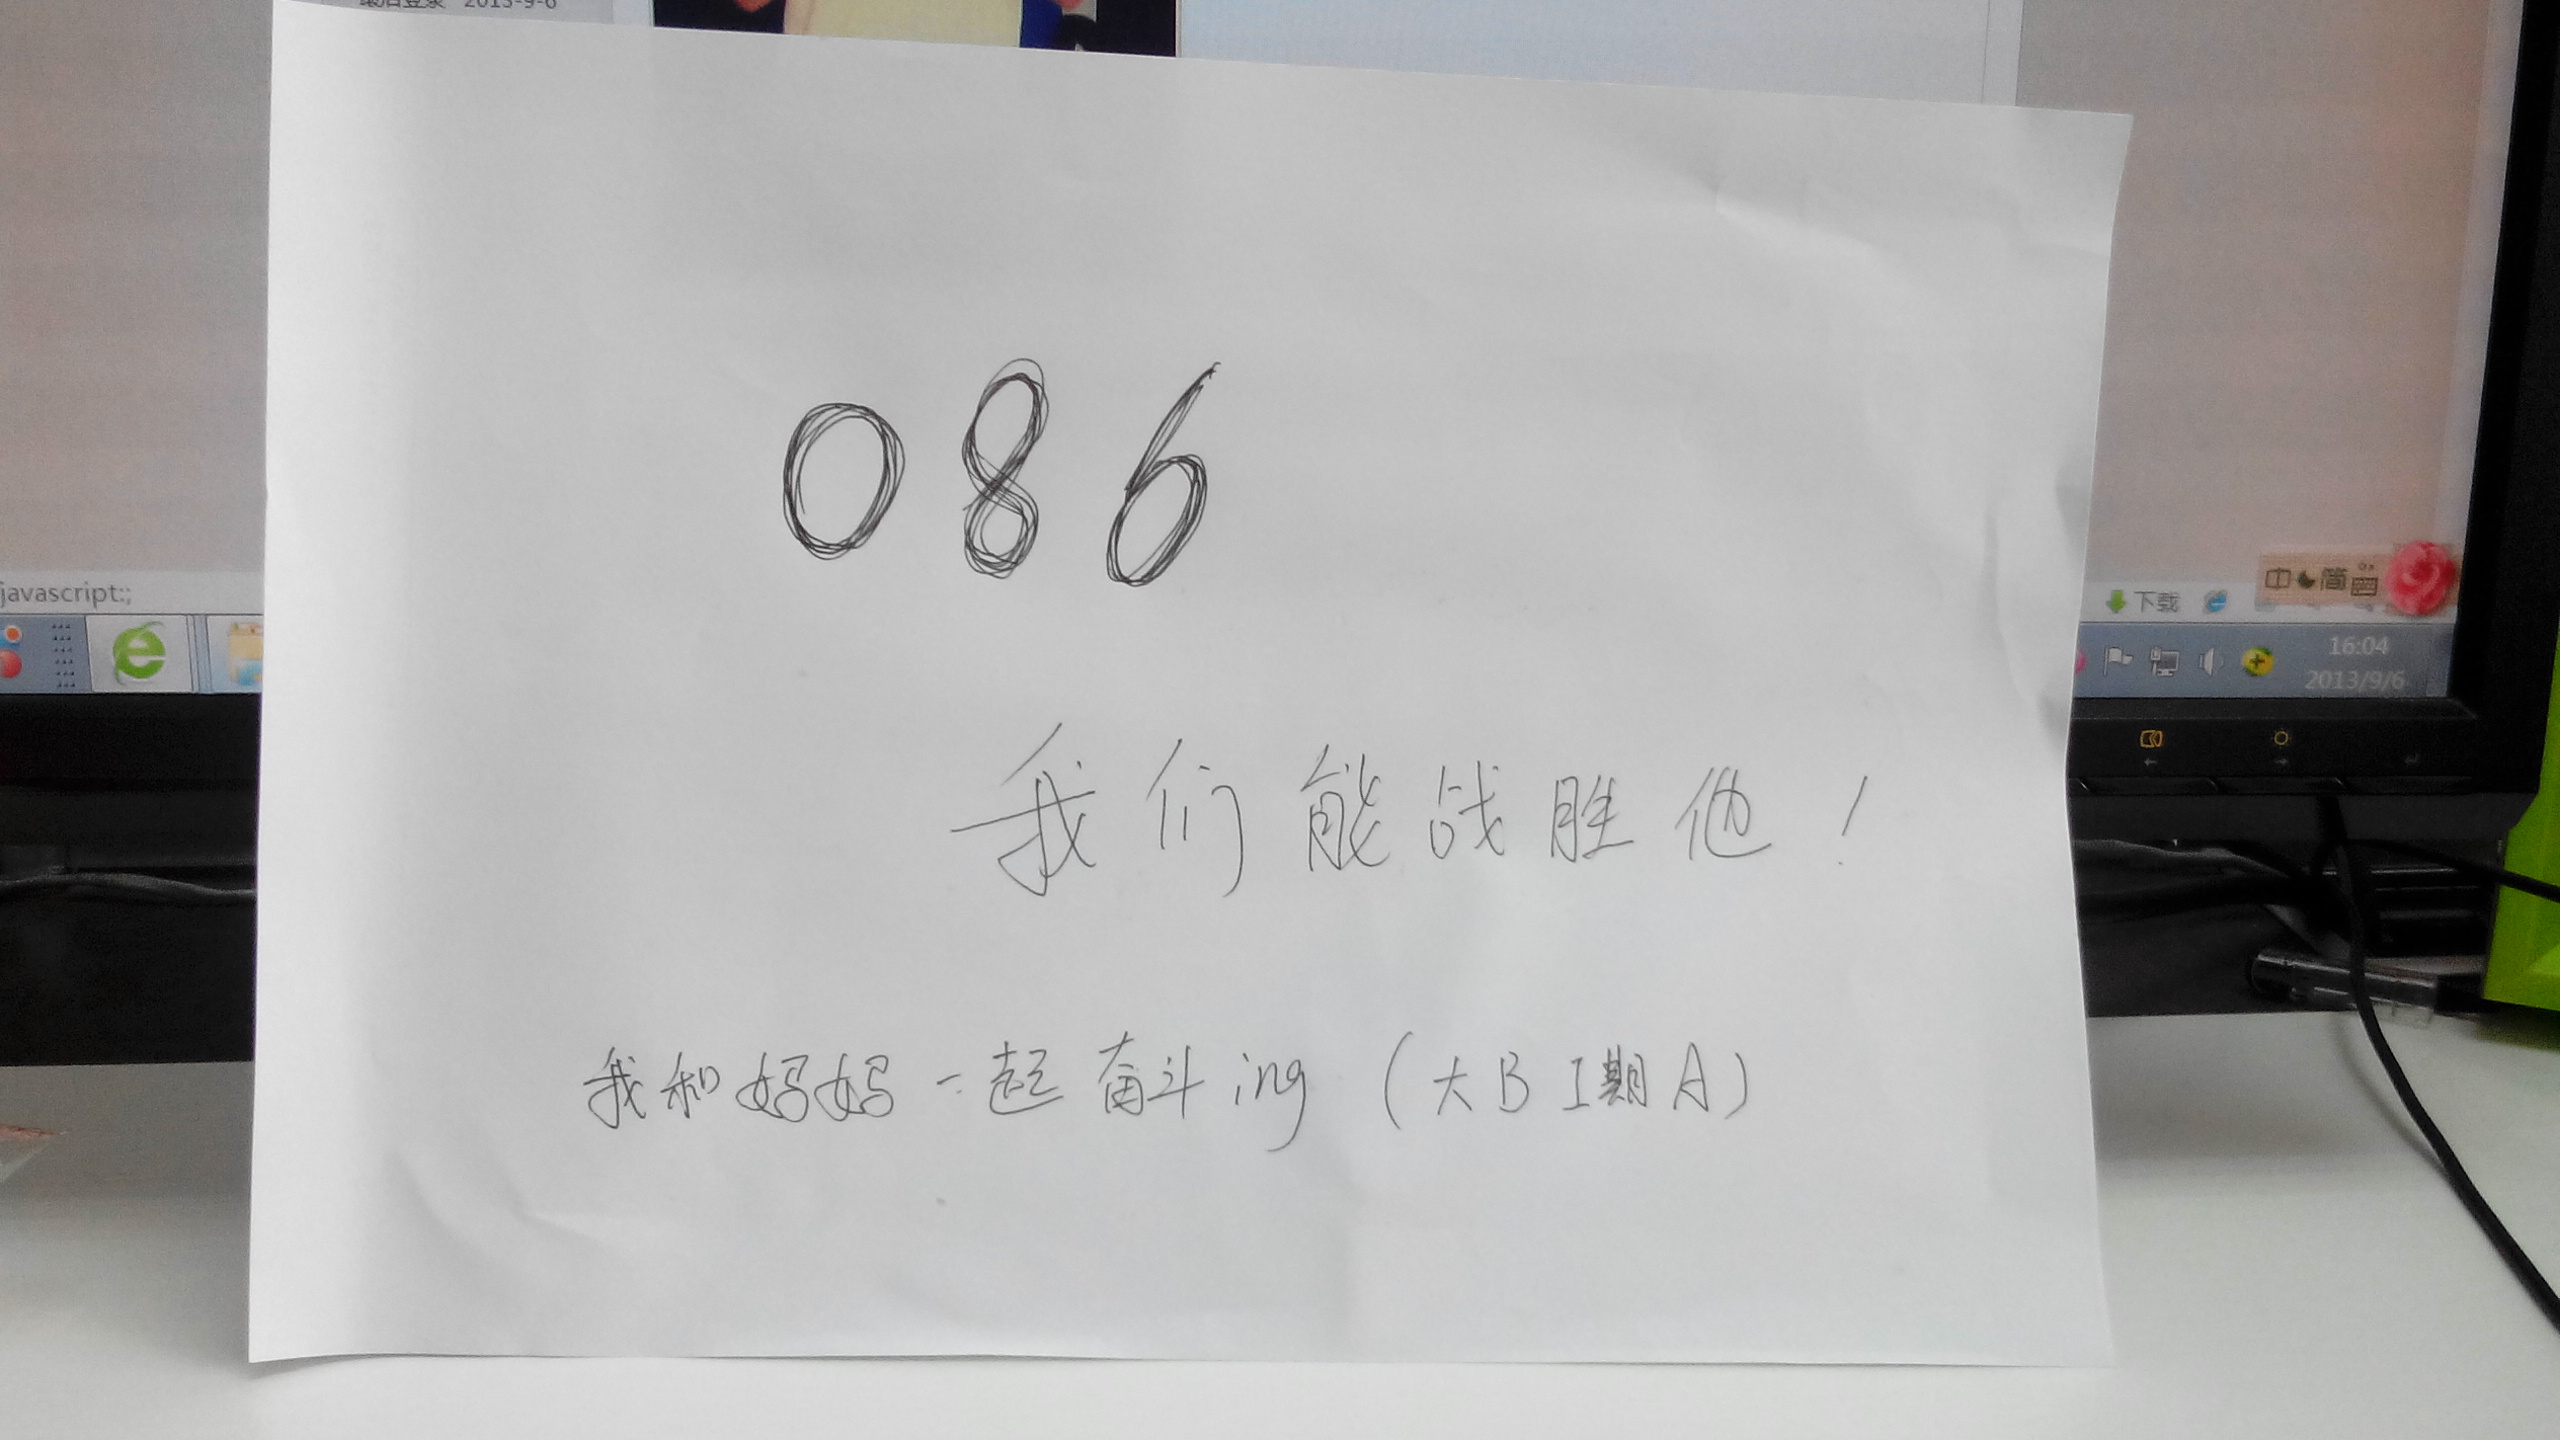 最后登录 2013-9-6
086
我们能战胜他！
我和妈妈一起奋斗ing（大B I期A）
javascript:;
中 简
下载
16:04
2013/9/6